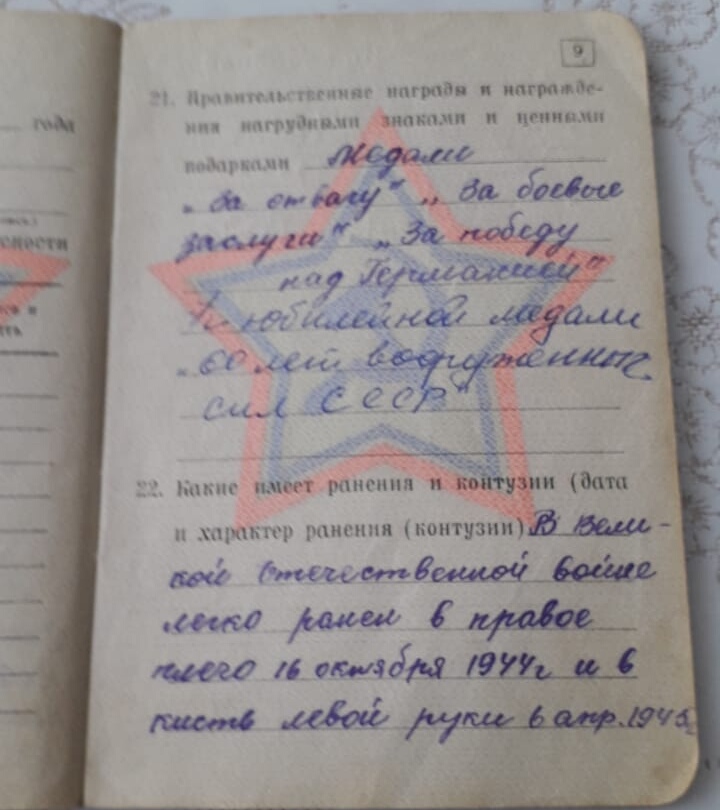 9
21. Правительственные награды и награжде-
ния нагрудными знаками и ценными
подарками Медали
„За отвагу" „За боевые
заслуги" „За победу
над Германией"
юбилейной медали
„60 лет вооруженных
сил СССР"
22. Какие имеет ранения и контузии (дата
и характер ранения (контузии) В Вели-
кой Отечественной войне
легко ранен в правое
плечо 16 октября 1944г и в
кисть левой руки 6 апр. 1945г
года